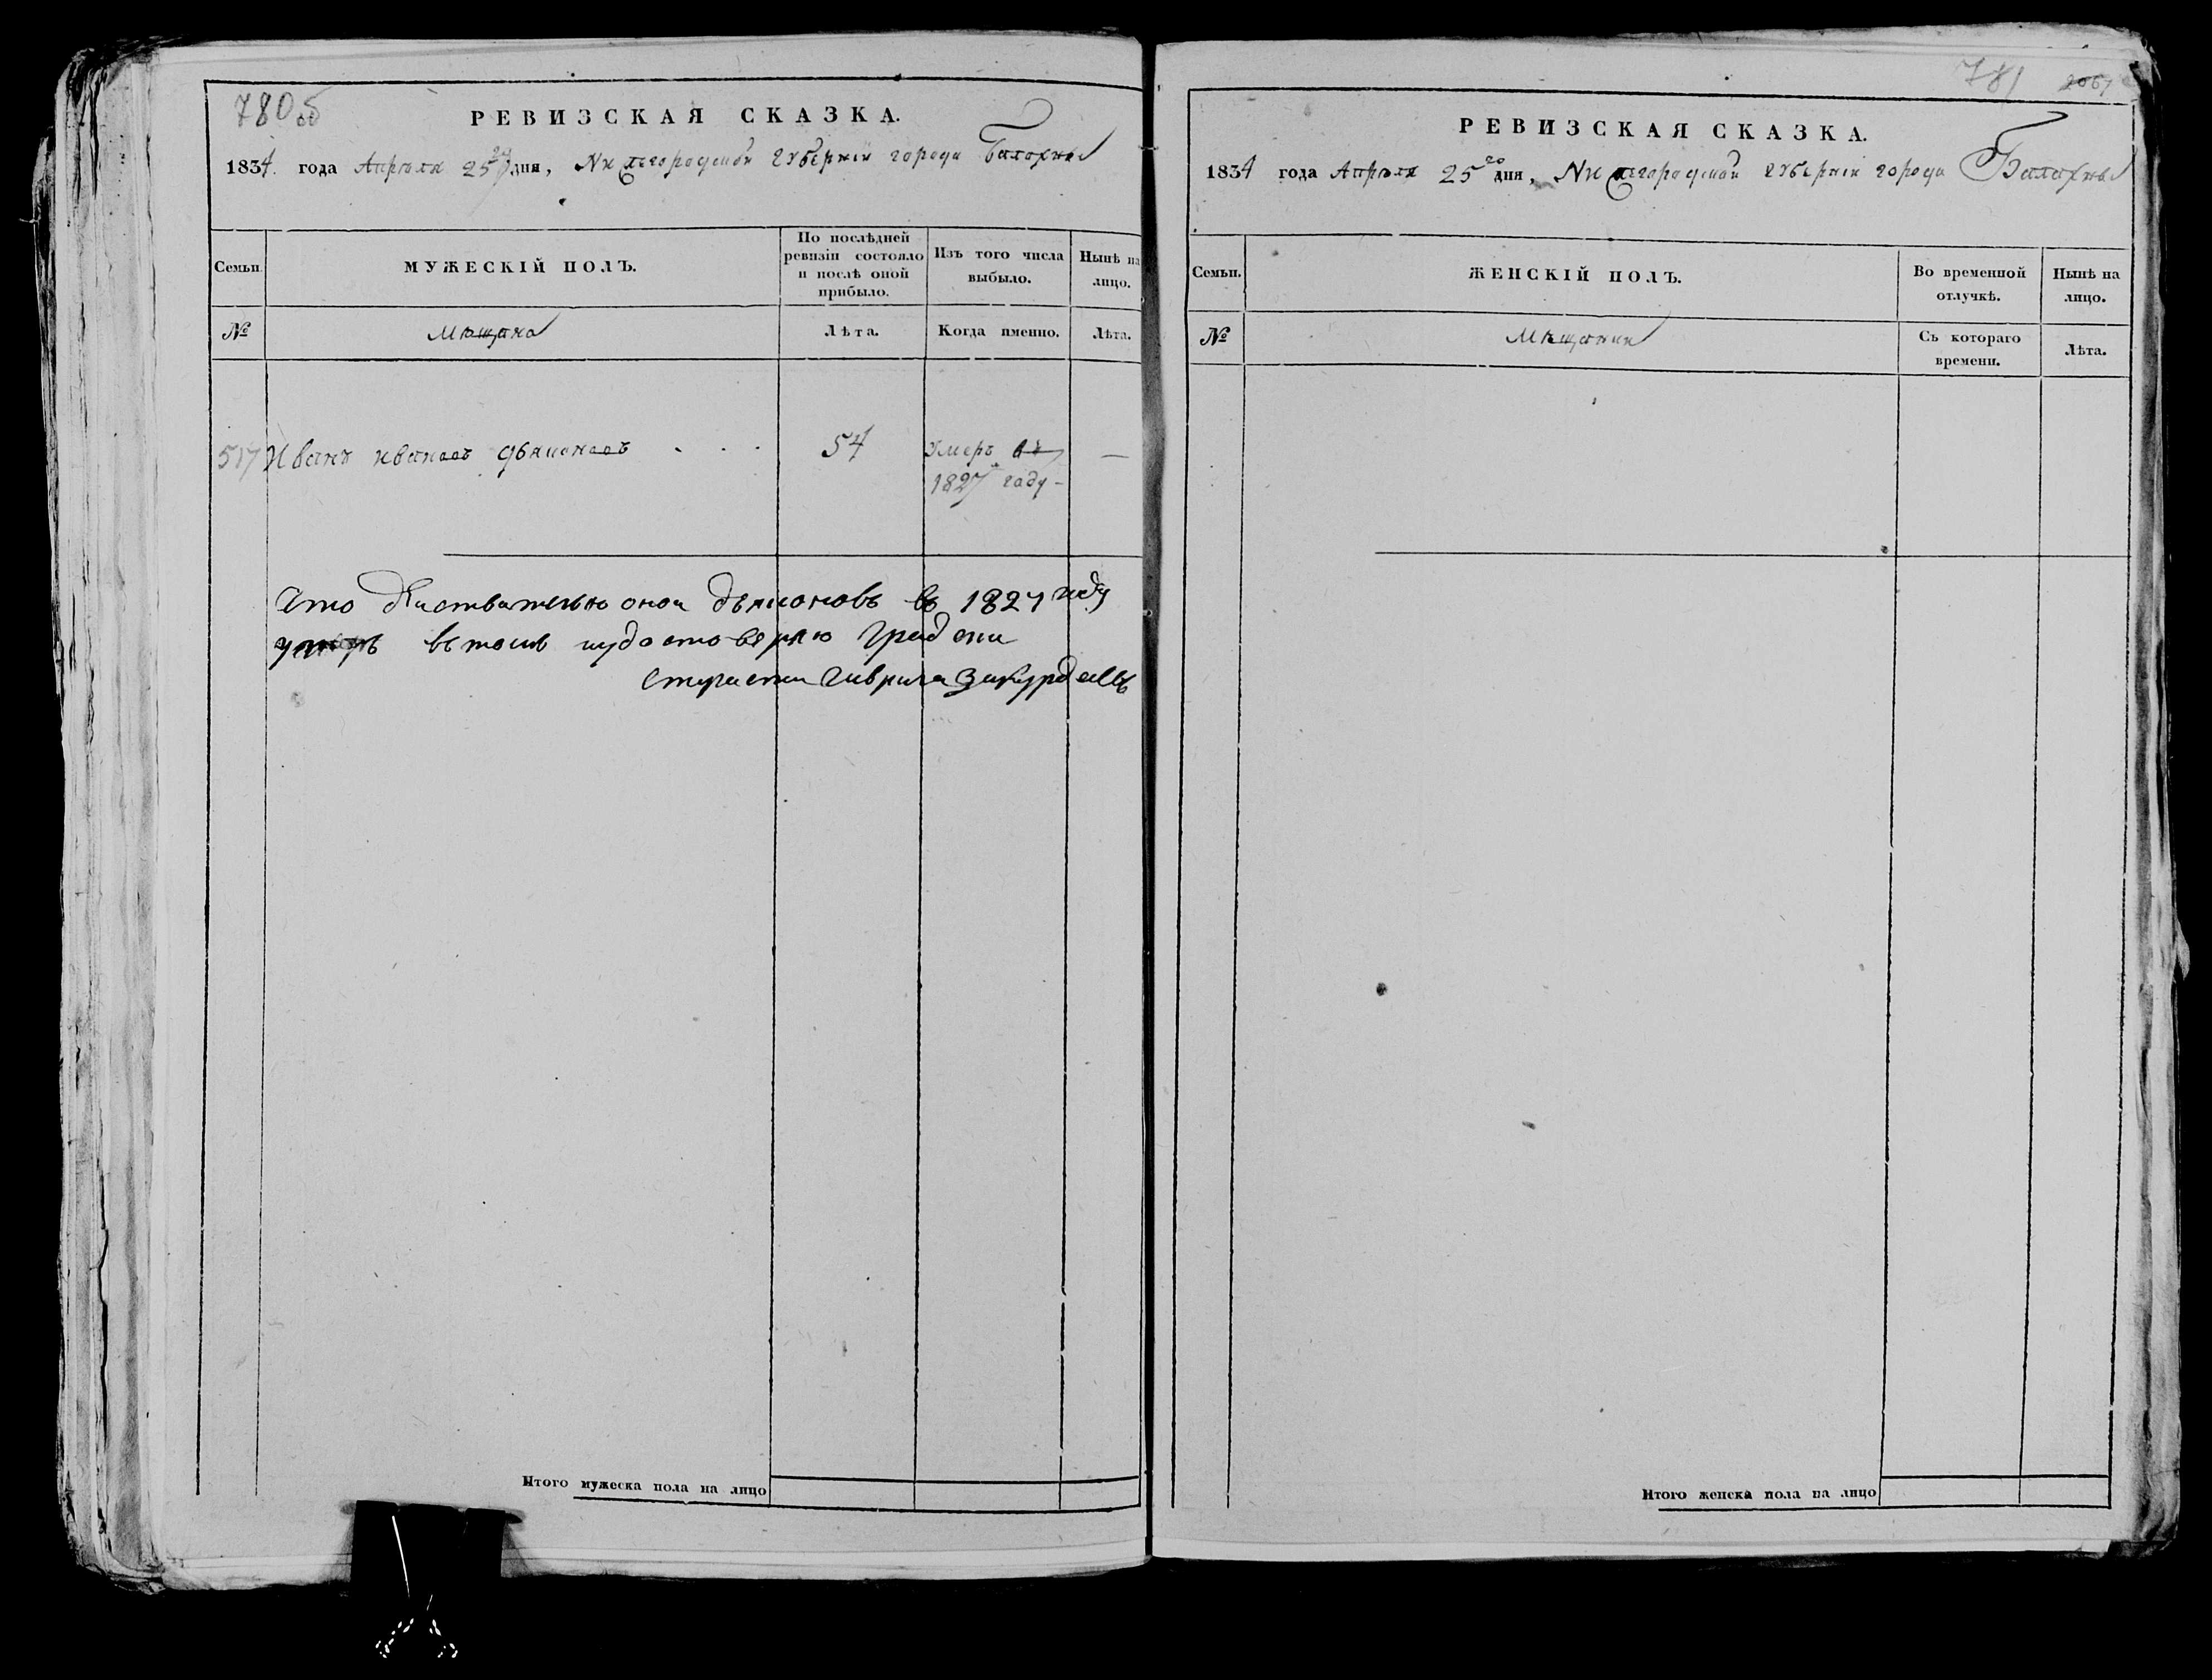 780об
РЕВИЗСКАЯ СКАЗКА.
1834 года Апреля 25го дня, Нижегородской губернии города Балахны
Семьи.
МУЖЕСКІЙ ПОЛЪ.
По послѣдней ревизіи состояло и послѣ оной прибыло.
Изъ того числа выбыло.
Нынѣ на лицо.
№
Мѣщана
Лѣта.
Когда именно.
Лѣта.
517 Иванъ ивановъ дьяконовъ 54 Умеръ въ —
1827м году -
Что действительно оной дьяконовъ въ 1827 году
умеръ въ томъ удостоверяю Градской
староста Гаврила Закурдаевъ
Итого мужеска пола на лицо
781
РЕВИЗСКАЯ СКАЗКА.
1834 года Апреля 25го дня, Нижегородской губернии города Балахны
Семьи.
ЖЕНСКІЙ ПОЛЪ.
Во временной отлучкѣ.
Нынѣ на лицо.
№
Мѣщанки
Съ котораго времени.
Лѣта.
Итого женска пола на лицо